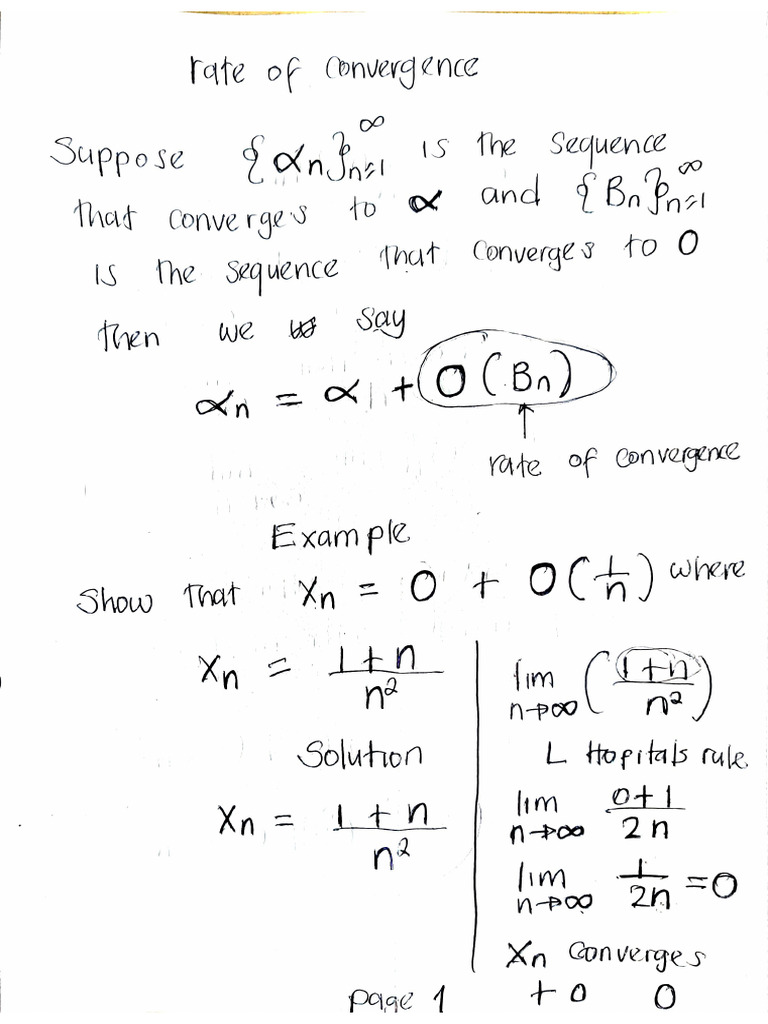 rate of convergence
Suppose {αn}∞n=1 is the sequence
that converges to α and {Bn}∞n=1
is the sequence that converges to 0
then we say
αn = α + O(Bn)
rate of convergence
Example
Show that xn = 0 + O(1/n) where
xn = 1+n/n²
Solution
xn = 1+n/n²
lim n→∞ (1+n/n²)
L Hopitals rule
lim n→∞ 0+1/2n
lim n→∞ 1/2n = 0
xn converges
to 0
page 1